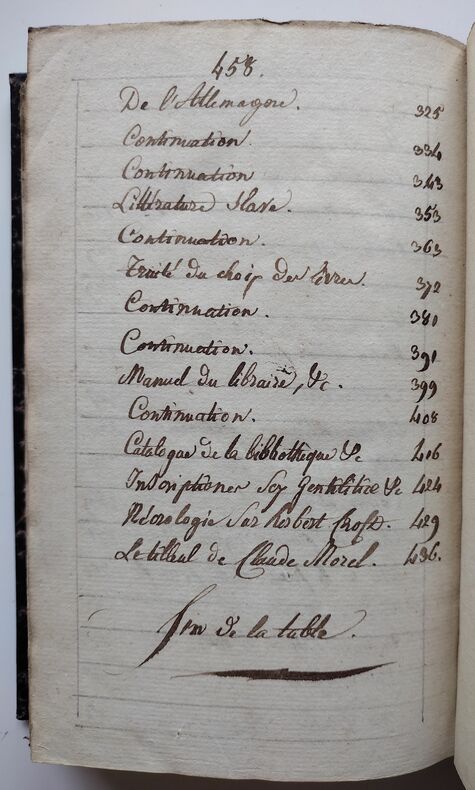 458.
De l'Allemagne. 325
Continuation. 334
Continuation 343
Littérature Slave. 353
Continuation. 363
Traité du choix des livres. 372
Continuation. 381
Continuation. 391
Manuel du libraire, &c. 399
Continuation. 408
Catalogue de la bibliothèque &c 416
Inscriptiones Gentilitiæ &c 424
Nécrologie Sir Herbert Croft. 429
Le tilleul de Claude Morel. 436.
fin de la table.